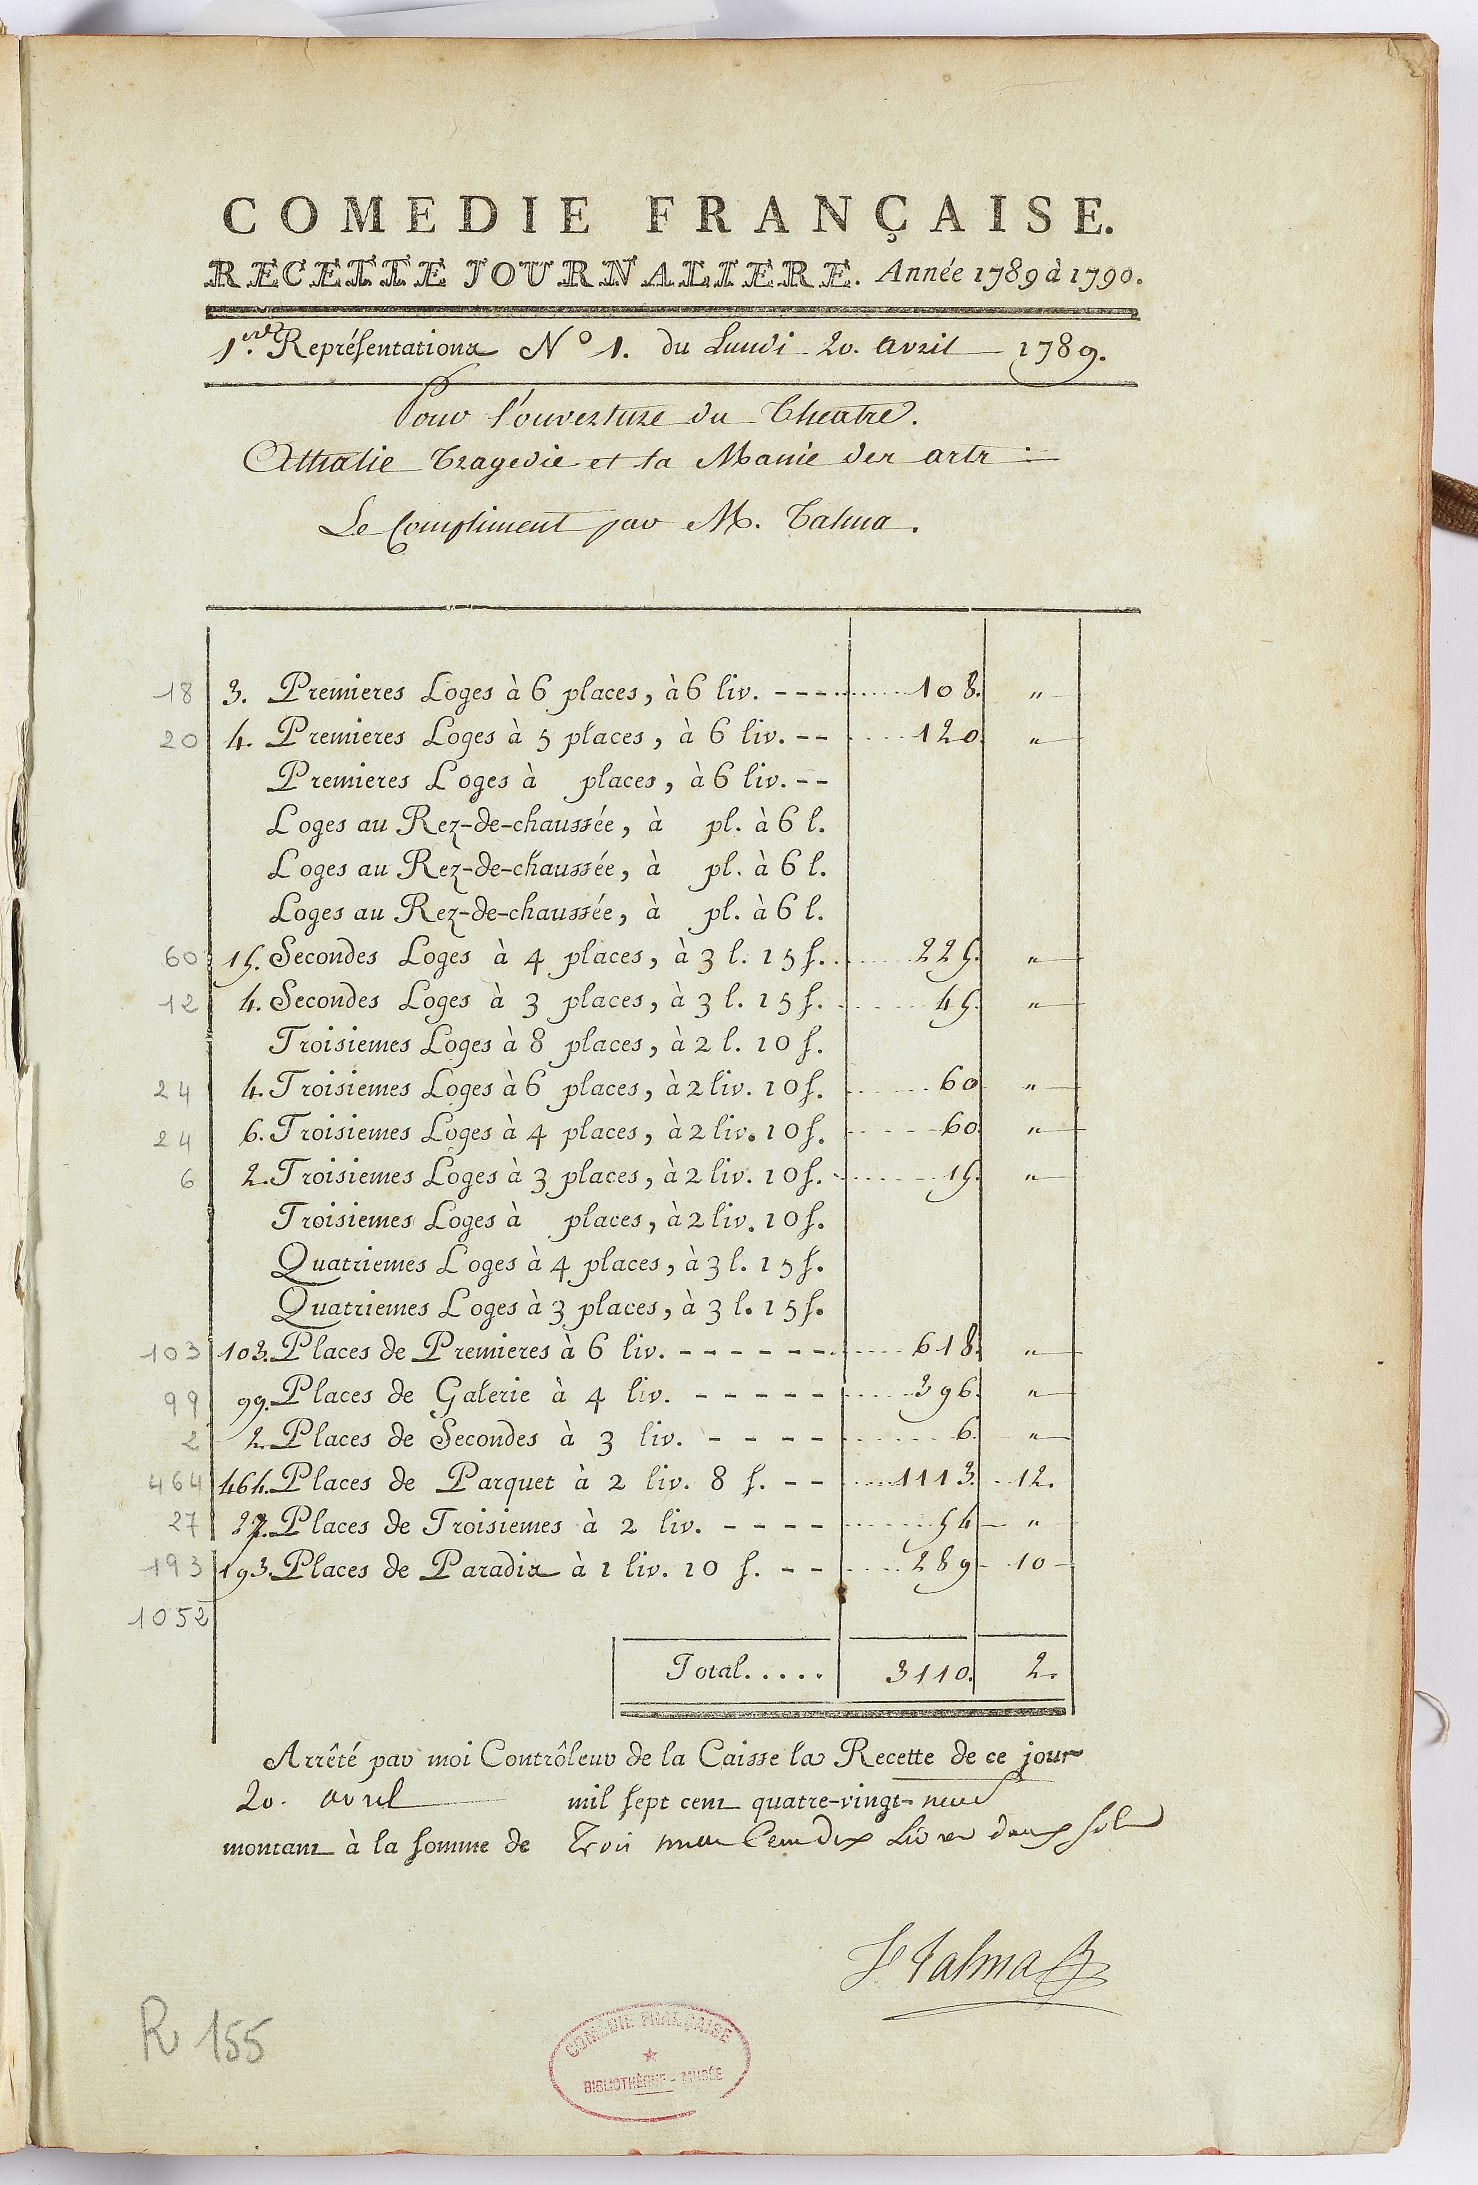 COMEDIE FRANÇAISE.
RECETTE JOURNALIERE. Année 1789 à 1790.
1.ere Repréſentationa N° 1. du Lundi 20. avril 1789.
Pour l'ouverture du Theatre.
Athalie Tragedie et la Manie des arts :
Le Compliment par M. Talma.
18 3. Premieres Loges à 6 places, à 6 liv. ---- 108. "
20 4. Premieres Loges à 5 places, à 6 liv. -- 120. "
Premieres Loges à places, à 6 liv. --
Loges au Rez-de-chaussée, à pl. à 6 l.
Loges au Rez-de-chaussée, à pl. à 6 l.
Loges au Rez-de-chaussée, à pl. à 6 l.
60 15. Secondes Loges à 4 places, à 3 l. 15 ſ. 225. "
12 4. Secondes Loges à 3 places, à 3 l. 15 ſ. 45. "
Troisiemes Loges à 8 places, à 2 l. 10 ſ.
24 4. Troisiemes Loges à 6 places, à 2 liv. 10 ſ. 60 "
24 6. Troisiemes Loges à 4 places, à 2 liv. 10 ſ. 60. "
6 2. Troisiemes Loges à 3 places, à 2 liv. 10 ſ. 15. "
Troisiemes Loges à places, à 2 liv. 10 ſ.
Quatriemes Loges à 4 places, à 3 l. 15 ſ.
Quatriemes Loges à 3 places, à 3 l. 15 ſ.
103 103. Places de Premieres à 6 liv. ------ 618. "
99 99. Places de Galerie à 4 liv. ----- 396. "
2 2. Places de Secondes à 3 liv. ---- 6. "
464 464. Places de Parquet à 2 liv. 8 ſ. -- 1113. 12.
27 27. Places de Troisiemes à 2 liv. ---- 54 "
193 193. Places de Paradis à 1 liv. 10 ſ. -- 289 10
1052
Total..... 3110. 2.
Arrêté par moi Contrôleur de la Caisse la Recette de ce jour
20. avril mil ſept cent quatre-vingt-neuf
montant à la ſomme de Trois mille Cent dix Livres deux sols
Talma
R 155
COMÉDIE FRANÇAISE
BIBLIOTHÈQUE - MUSÉE